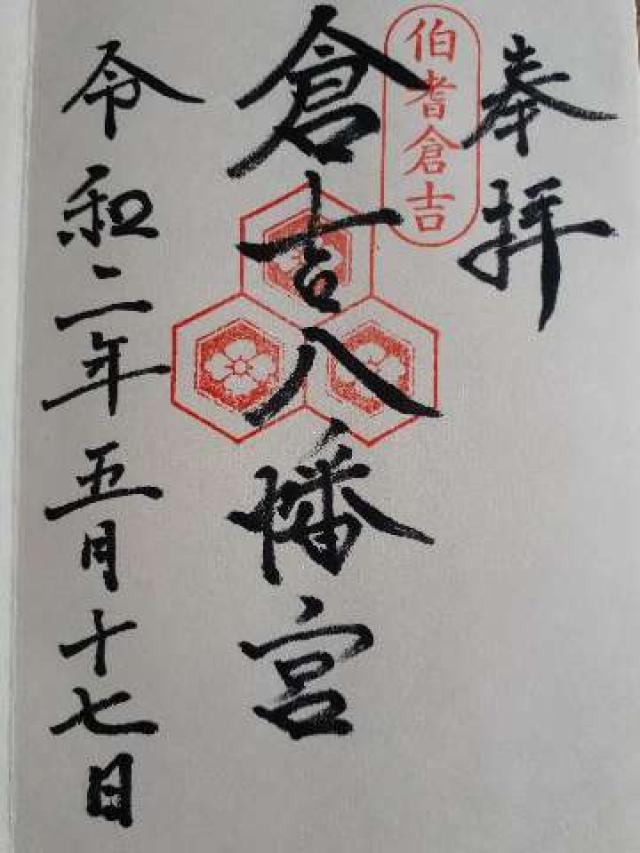 奉拝
伯耆倉吉
倉吉八幡宮
令和二年五月十七日